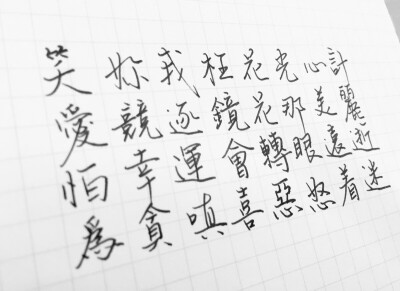 笑妳我枉花光心計
愛競逐鏡花那美麗
怕幸運會轉眼遠逝
爲貪嗔喜惡怒着迷